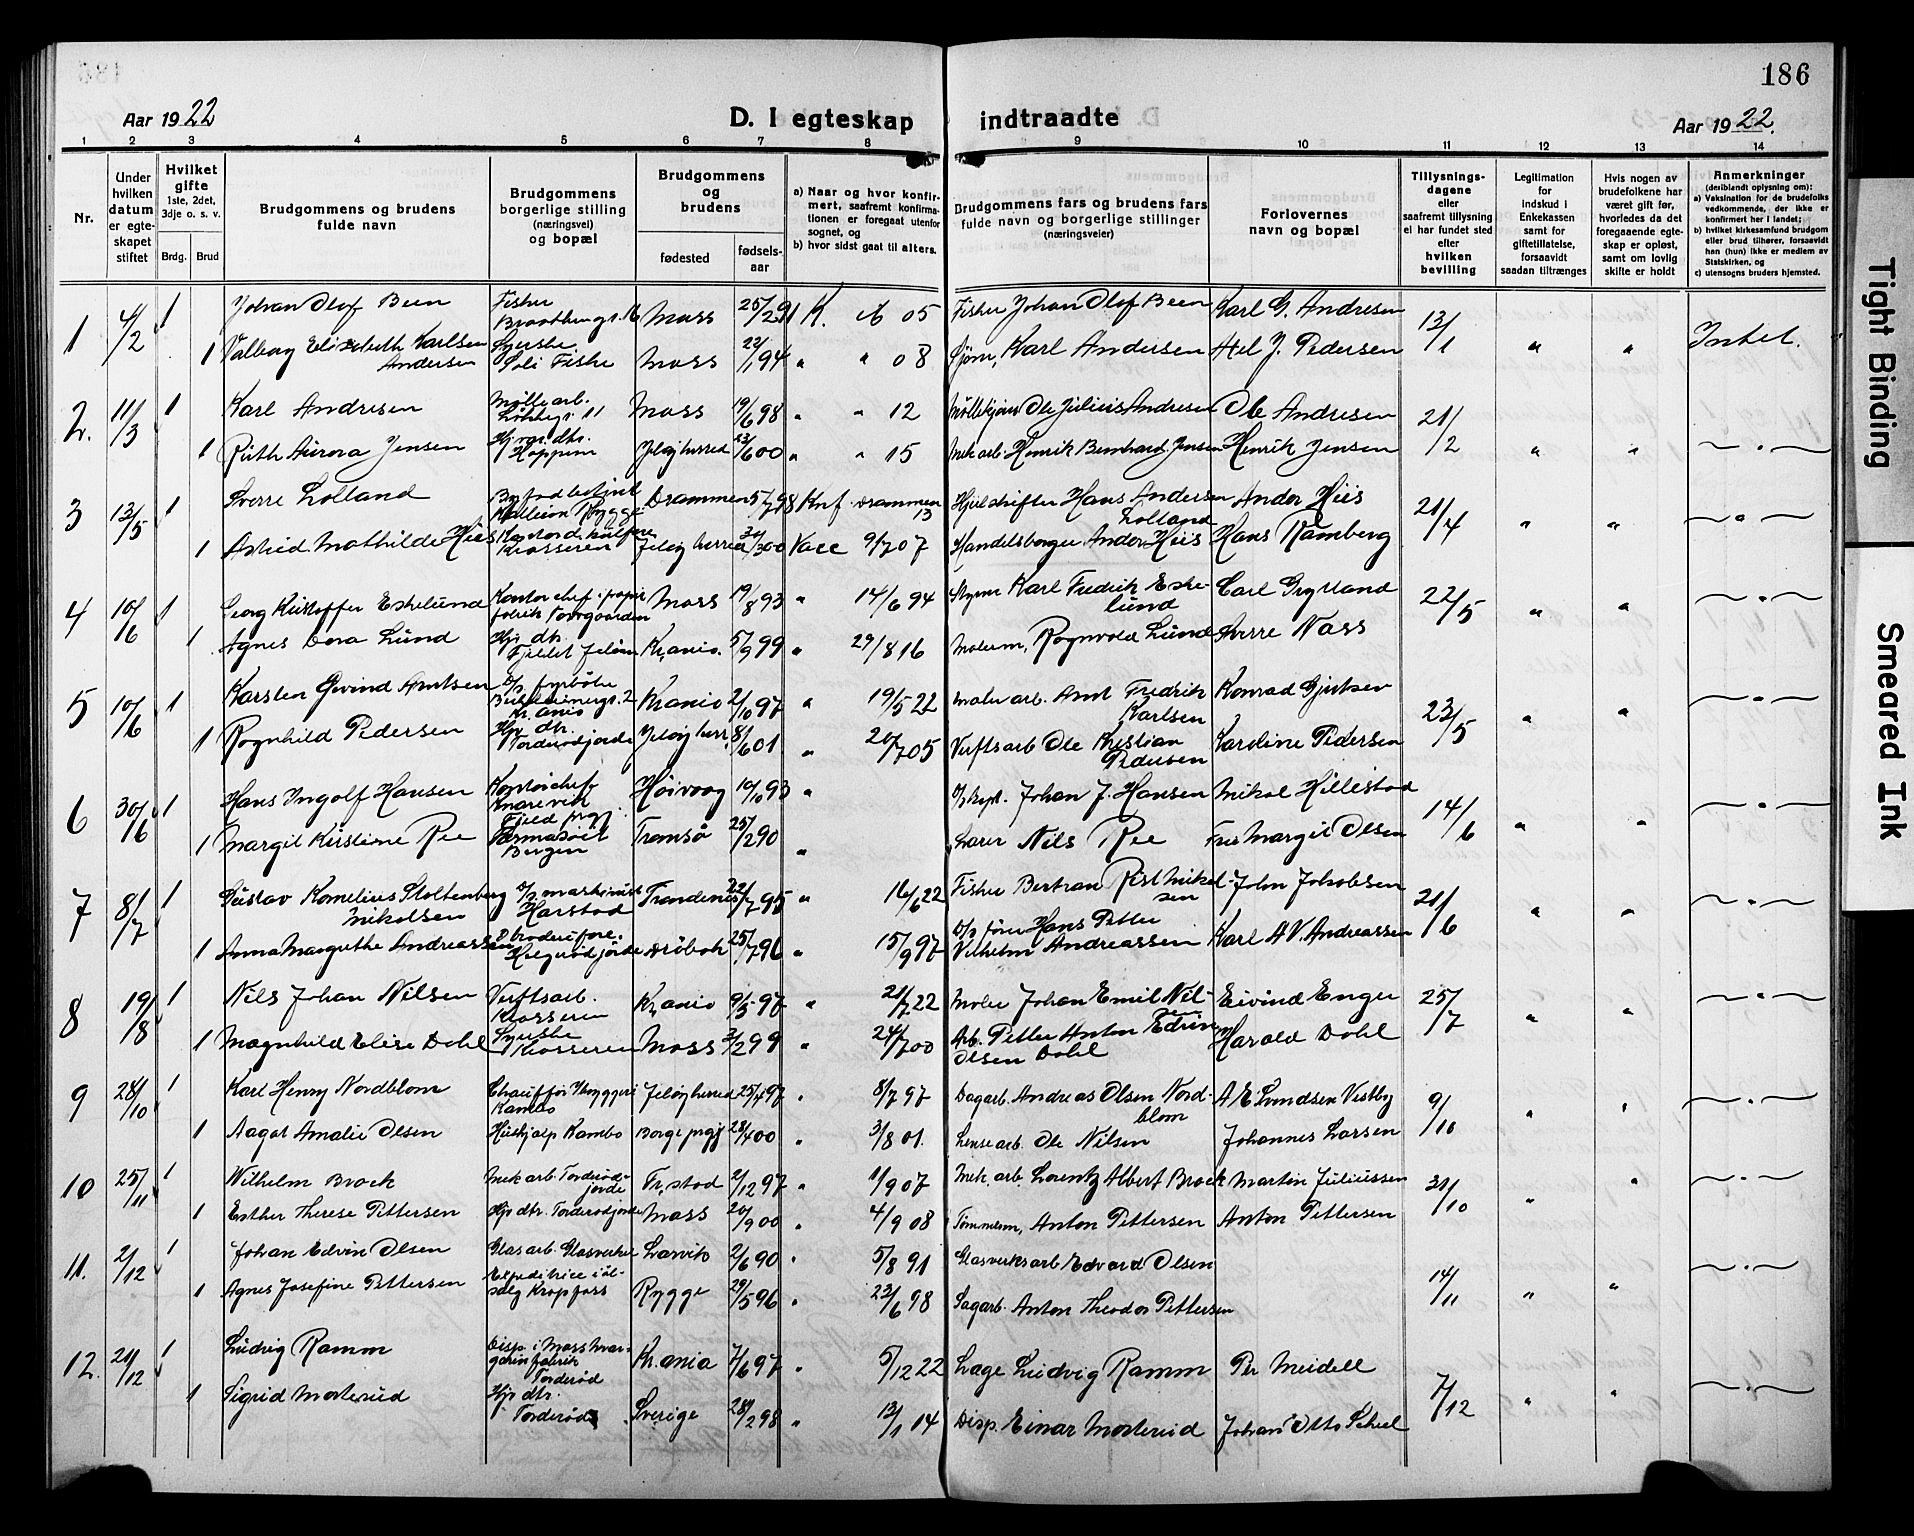 186
Aar 1922
D. I egteskap indtraadte
Aar 1922.
1 2 3 4 5 6 7 8 9 10 11 12 13 14
Nr.
Under hvilken datum er egteskapet stiftet
Hvilket gifte 1ste, 2det, 3dje o. s. v.
Brdg. Brud
Brudgommens og brudens fulde navn
Brudgommens borgerlige stilling (næringsvei) og bopæl
Brudgommens og brudens
fødested
fødselsaar
a) Naar og hvor konfirmert, saafremt konfirmationen er foregaat utenfor sognet, og
b) hvor sidst gaat til alters.
Brudgommens fars og brudens fars fulde navn og borgerlige stillinger (næringsveier)
Forlovernes navn og bopæl
Tillysningsdagene eller saafremt tillysning ei har fundet sted efter hvilken bevilling
Legitimation for indskud i Enkekassen samt for giftetillatelse, forsaavidt saadan tiltrænges
Hvis nogen av brudefolkene har været gift før, hvorledes da det foregaaende egteskap er opløst, samt om lovlig skifte er holdt
Anmerkninger (deriblandt oplysning om):
a) Vaksination for de brudefolks vedkommende, der ikke er konfirmert her i landet;
b) hvilket kirkesamfund brudgom eller brud tilhører, forsaavidt han (hun) ikke er medlem av Statskirken, og
c) utensogns bruders hjemsted.
1 4/2 1 Johan Olof Been Fisker Moss 25/2 91 K. 05 Fisker Johan Olof Been Karl G. Andresen 13/1 " " Intet.
1 Valborg Elisabeth Karlsen Andersen Syerske Moss 22/1 94 " " 08 Sjøm. Karl Andersen J. Pedersen
2. 11/3 1 Karl Andresen Møllearb. Moss 19/6 98 " " 12 Ole Julius Andresen Ole Andresen 21/2 " "
1 Ruth Aurora Jensen Hjv. dtr. Hoppern Jeløy herred 23/6 00 " " 15 Mek arb. Henrik Bernhard Jensen Henrik Jensen
3 13/5 1 Sverre Lolland Drammen 5/7 98 Knf. Drammen 13 Hans Andersen Lolland Andor Hiis 21/4 " "
1 Astrid Mathilde Hiis Krosseren Jeløy herred 30/3 00 Vacc 9/7 07 Handelsborger Andor Hiis Hans Ramberg
4 10/6 1 Georg Kristoffer Eskelund Kontorchef i papir fabrik Moss 19/8 93 " 14/6 94 Styrm Karl Fredrik Eskelund Carl 22/5 " "
1 Agnes Dora Lund Hjv. dtr. Fjeldet Jeløen Kr.ania. 5/9 99 " 29/8 16 Malerm. Ragnvald Lund Sverre Nass
5 10/6 1 Karsten Øivind Arntsen D/s fyrbøter Kr.ania Kr.ania 2/10 97 " 19/5 22 Maler arb. Arnt Fredrik Karlsen Konrad Gjertsen 23/5 " "
1 Ragnhild Pedersen Hjv. dtr. Torderødjorde Jeløy herr. 8/6 01 " 20/7 05 Verftsarb Ole Kristian Pedersen Karoline Pedersen
6 30/6 1 Hans Ingolf Hansen Kontorchef Høivaag 19/10 93 " Johan J. Hansen Mikal Hillestad 14/6 " "
1 Margit Kirstine Ree Bergen Tromsø 25/2 90 " Lærer Nils Ree Fru Margit Olsen
7 8/7 1 Gustav Kornelius Stoltenberg Mikalsen D/s maskinist Harstad Trondenes 22/7 95 " 16/6 22 Fisker Bertran Mikalsen John Jakobsen 21/6 " "
1 Anna Margrethe Andreassen Drøbak 25/7 96 " 15/9 97 D/s fører Hans Petter Vilhelm Andreassen Karl A V. Andreassen
8 19/8 1 Nils Johan Nilsen Verftsarb. Krosseren Kr.ania 9/5 97 " 21/7 22 Maler Johan Emil Nilsen Eivind Enger 25/7 " "
1 Magnhild Elise Dahl Syerske Krosseren Moss 3/2 99 " 24/7 00 Arb. Petter Anton Edvin Olsen Dahl Harald Dahl
9 28/10 1 Karl Henry Nordblom Kambo Jeløy herred 25/4 97 " 8/7 97 Dagarb. Andreas Olsen Nordblom A E Lundsen Vestby 9/10 " "
1 Aagot Amalie Olsen Hushjælp Kambo Borge prgj 28/4 00 " 3/8 01. Lensearb. Ole Nilsen Johannes Larsen
10 25/11 1 Wilhelm Brock Mek arb. Torderødjorde Fr.stad 2/12 97 " 1/9 07 Mek. arb. Lorentz Albert Brock Martin Juliussen 31/10 " "
1 Esther Therese Pettersen Hjv dtr. Torderødjorde Moss 20/9 00 " 4/9 08 Tømmerm. Anton Pettersen Anton Pettersen
11. 2/12 1 Johan Edvin Olsen Glasarb. Glasverket Larvik 2/6 90 " 5/8 91 Glasverksarb Edvard Olsen 14/11 " "
1 Agnes Josefine Pettersen Expeditrice i ølsalg Kropfoss Rygge 29/5 96 " 23/6 98 Sagarb. Anton Theodor Pettersen
12. 21/12 1 Ludvig Ramm Disp. i Moss margarinfabrik Torderød Kr.ania 7/6 97 " 5/12 22 Læge Ludvig Ramm Per Meidell 7/12 " "
1 Sigrid Mosterud Hjv dtr. Torderød Sverige 28/2 98 " 13/1 14 Disp. Einar Mosterud Johan Otto Scheel
Tight Binding
Smeared Ink